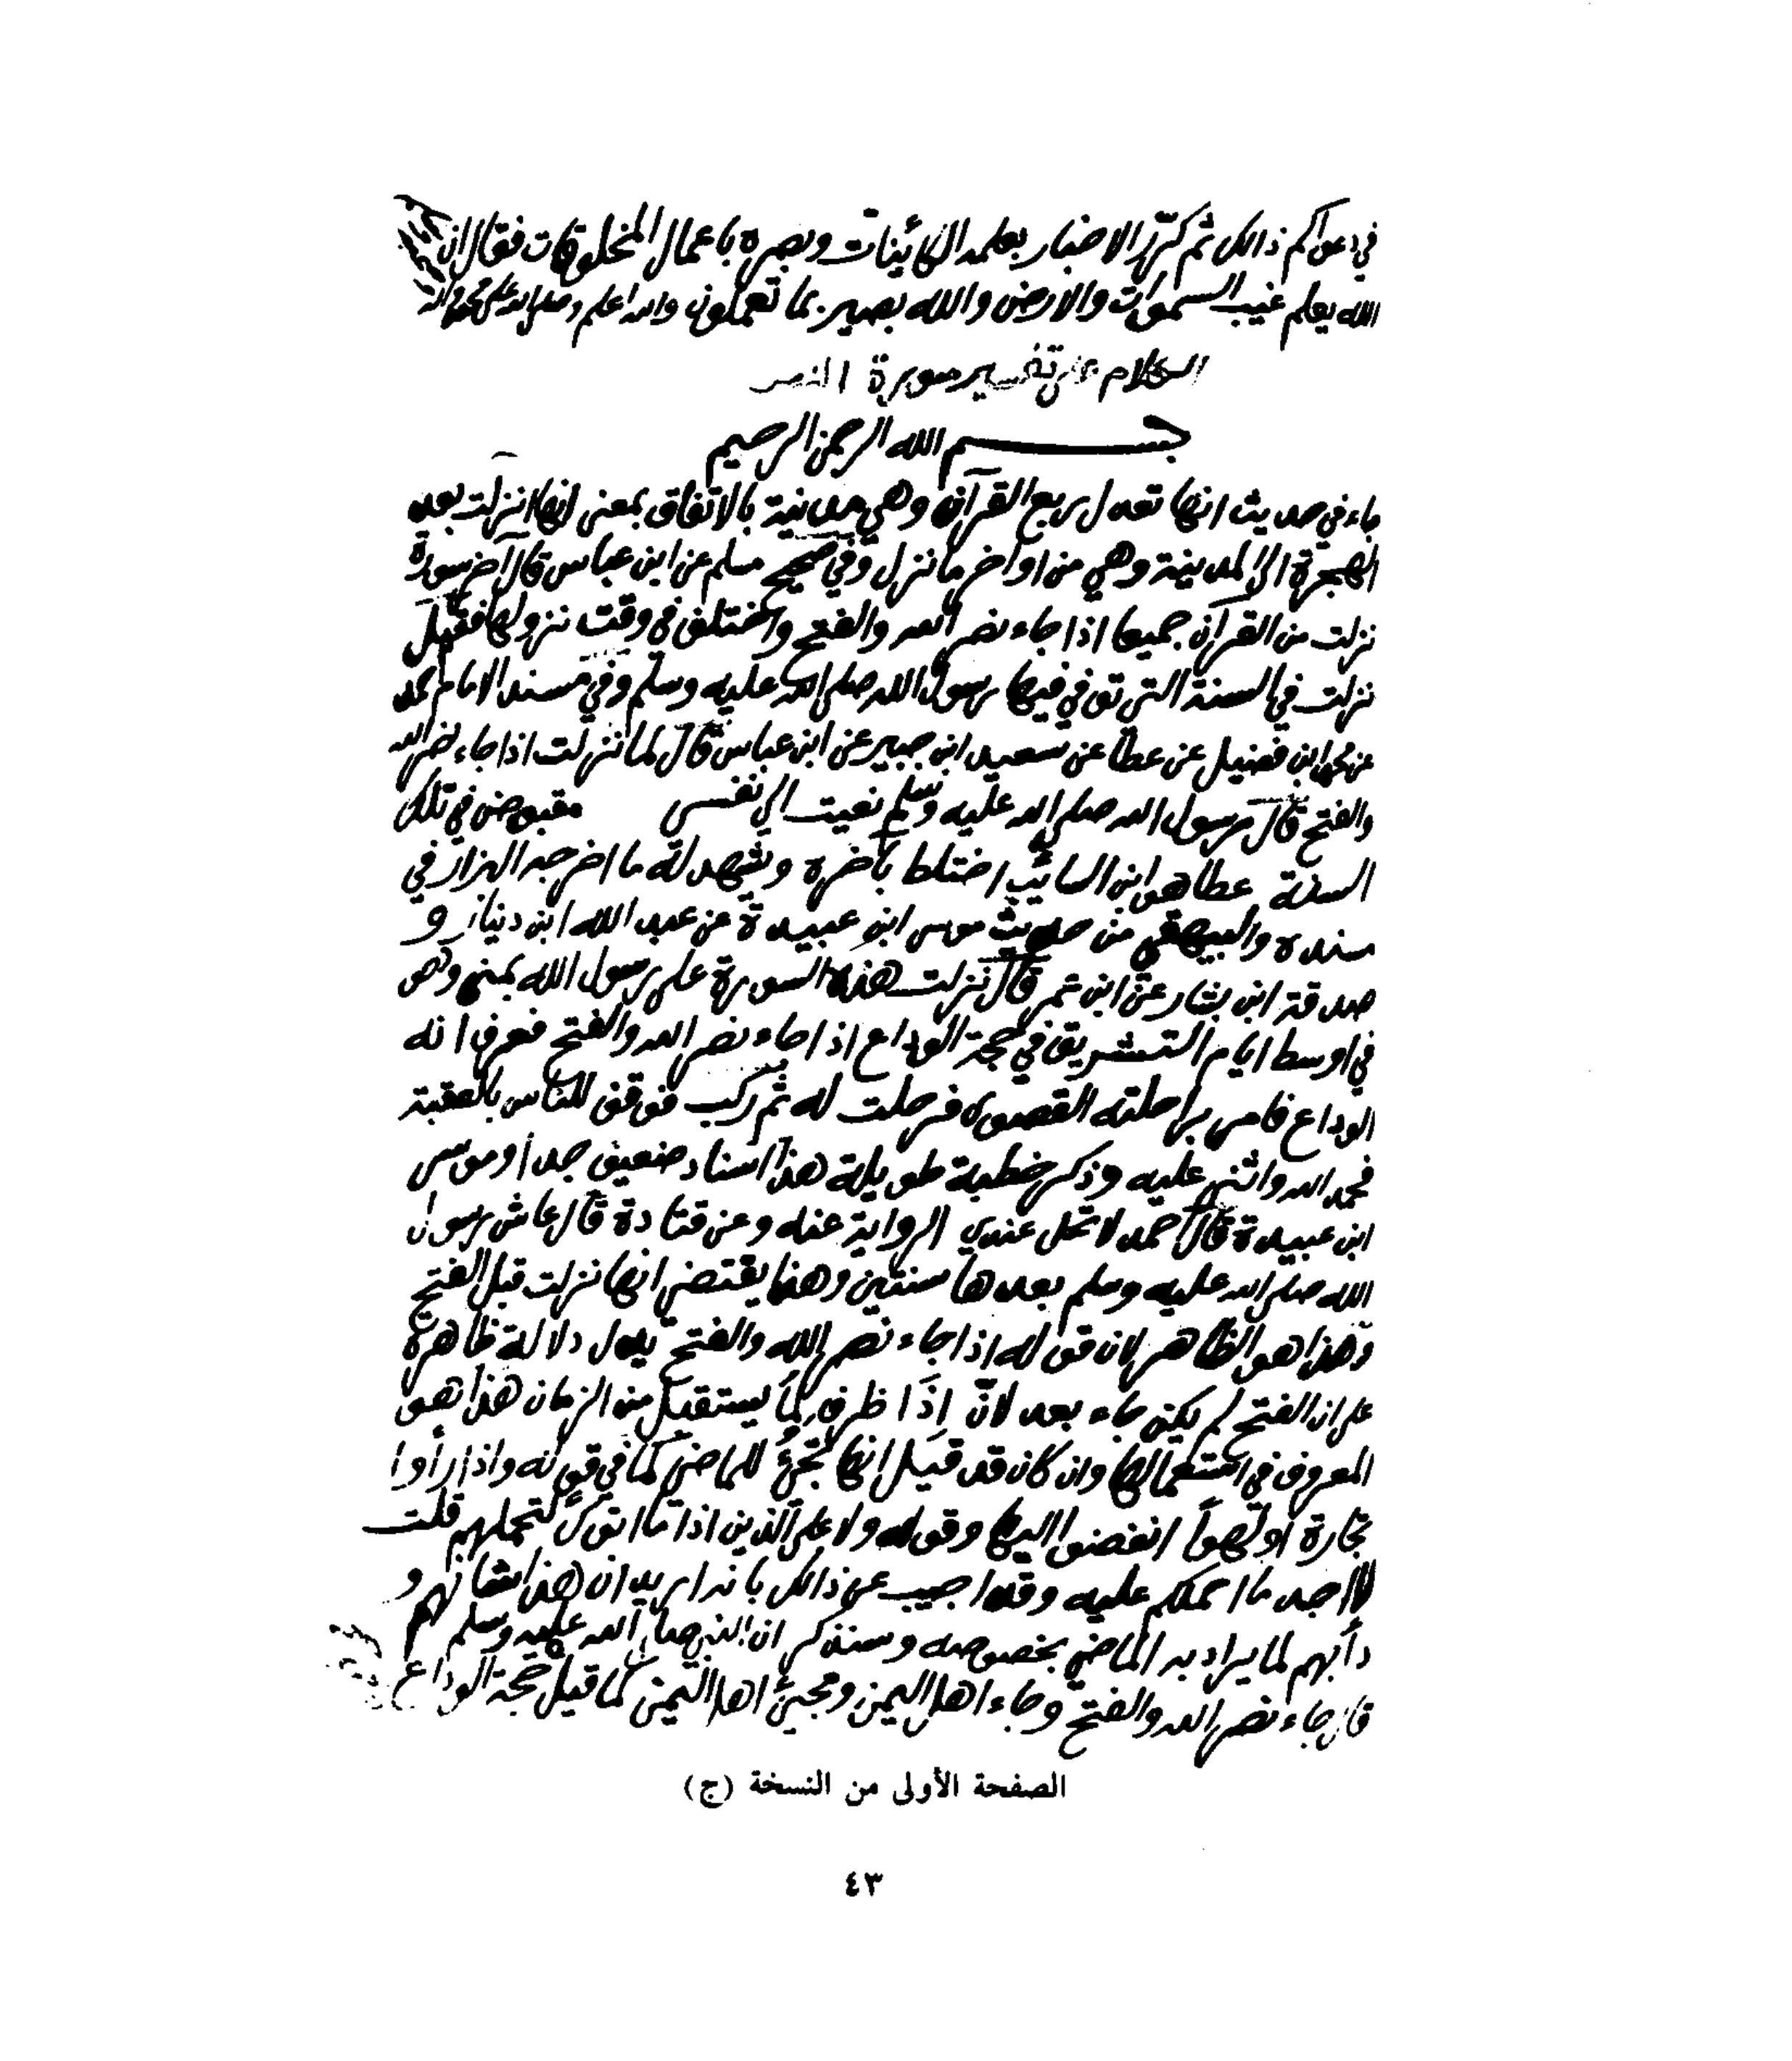 في دعواكم ذالك ثم كرّر الاخبار بعلمه الكائينات وبصره باعمال المخلوقات فقال ان
الله يعلم غيب السموات والارض والله بصير بما تعملون والله اعلم وصلى الله على محمد واله
الكلام على تفسير سورة النصر
بسم الله الرحمن الرحيم
جاء في حديث انها تعدل ربع القرآن وهي مدينية بالاتفاق بمعنى انها نزلت بعد
الهجرة الى المدينة وهي من اواخر ما نزل وفي صحيح مسلم عن ابن عباس قال آخر سورة
نزلت من القرآن جميعا اذا جاء نصر الله والفتح واختلف في وقت نزولها فقيل
نزلت في السنة التي توفي فيها رسول الله صلى الله عليه وسلم وفي مسند الامام احمد
عن محمد ابن فضيل عن عطا عن سعيد ابن جبير عن ابن عباس قال لما نزلت اذا جاء نصر الله
والفتح قال رسول الله صلى الله عليه وسلم نعيت الي نفسي مقبوض في تلك
السنة عطا هو ابن السائب اختلط بآخره ويشهد له ما اخرجه البزار في
مسنده والبيهقي من حديث موسى ابن عبيدة عن عبد الله ابن دينار و
صدقة ابن يشار عن ابن عمر قال نزلت هذه السورة على رسول الله بمنى وهو
في اوسط ايام التشريق في حجة الوداع اذا جاء نصر الله والفتح فعرف انه
الوداع فامر براحلته القصوى فرحلت له ثم ركب فوقف للناس بالعقبة
فحمد الله واثنى عليه وذكر خطبة طويلة هذا اسناد ضعيف جدا وموسى
ابن عبيدة قال احمد لا تحل عندي الرواية عنه وعن قتادة قال عاش رسول
الله صلى الله عليه وسلم بعدها سنتين وهذا يقتضي انها نزلت قبل الفتح
وهذا هو الظاهر لان قوله اذا جاء نصر الله والفتح يدل دلالة ظاهرة
على ان الفتح لم يكن جاء بعد لانّ إذَا ظرف لما يستقبل من الزمان هذا هو
المعروف في استعمالها وان كان قد قيل انها تجئ للماضي كما في قوله واذا رأوا
تجارة او لهواً انفضوا اليها وقوله ولا على الذين اذا ما اتوك لتحملهم قلت
لا اجد ما احملكم عليه وقد اجيب عن ذالك بانه اريد ان هذا شانهم و
دأبهم لما يراد به الماضي بخصوصه وسنذكر ان النبي صلى الله عليه وسلم
قال جاء نصر الله والفتح وجاء اهل اليمن ومجيئ اهل اليمن كما قيل حجة الوداع
الصفحة الأولى من النسخة (ج)
٤٣